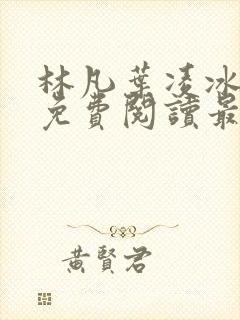 林凡葉凌冰
免費閱讀最
黃賢君